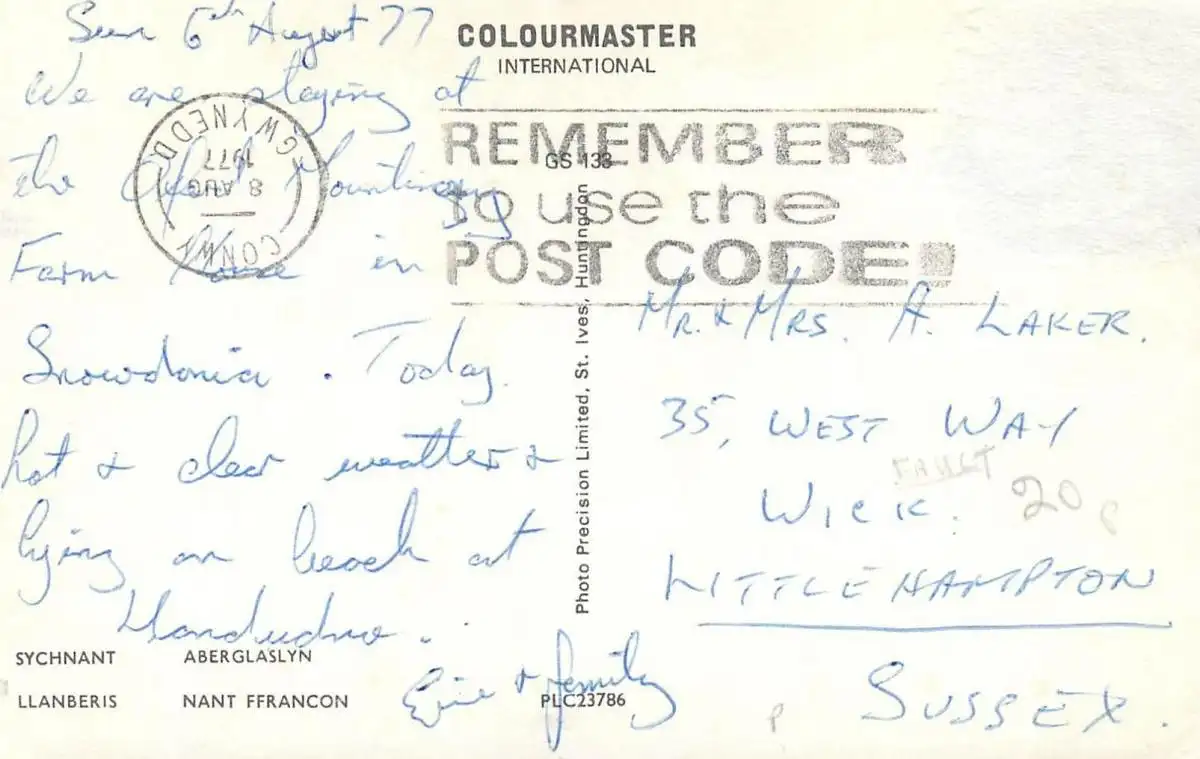 Sun 6th August 77
We are staying at
the
Farm House in
Snowdonia. Today
hot & clear weather &
lying on beach at
Llandudno.
Eric & family
SYCHNANT ABERGLASLYN
LLANBERIS NANT FFRANCON
COLOURMASTER
INTERNATIONAL
GWYNEDD
1977
8 AUG
CONWY
REMEMBER
to use the
POST CODE!
GS 133
Photo Precision Limited, St. Ives, Huntingdon
PLC23786
MR. & MRS. A. LAKER.
35, WEST WAY
WICK.
20
LITTLEHAMPTON
SUSSEX.
P